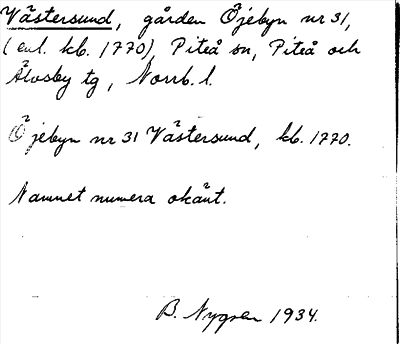 Västersund, gården Öjebyn nr 31,
(enl. kb. 1770), Piteå sn, Piteå och
Älvsby tg, Norrb. l.
Öjebyn nr 31 Västersund, kb. 1770.
Namnet numera okänt.
B. Nygren 1934.